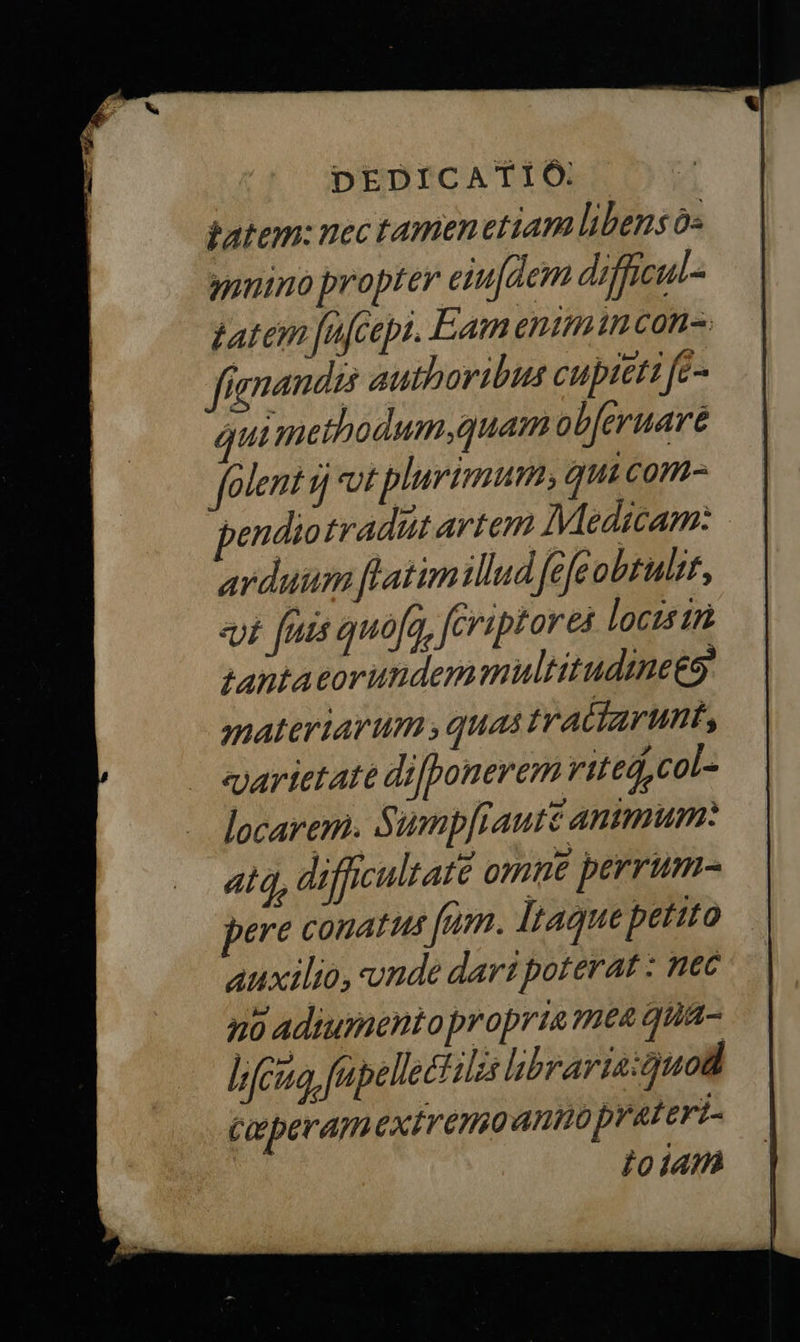 DEDICATIO.
tatem: nec tamen etiam libens õ-
mnino propter eiuſdem difficul-
tatem ſuſcepi. Eam enim in con-
ſignandis authoribus cupiēti ſe-
qui methodum, quam obſeruare
ſolent ij vt plurimum, qui com-
pendio tradūt artem Medicam:
arduum ſtatim illud ſeſe obtulit,
vt ſuis quoſq; ſcriptores locis in
tanta eorundem multitudine &
materiarum, quas tractarunt,
varietate diſponerem riteq; col-
locarem. Sumpſi autē animum:
atq; difficultatē omnē perrum-
pere conatus ſum. Itaque petito
auxilio, vnde dari poterat: nec
nō adiumento propriæ meæ qua-
liſcūq; ſupellectilis librariæ: quod
cœperam extremo anno præteri-
to iam